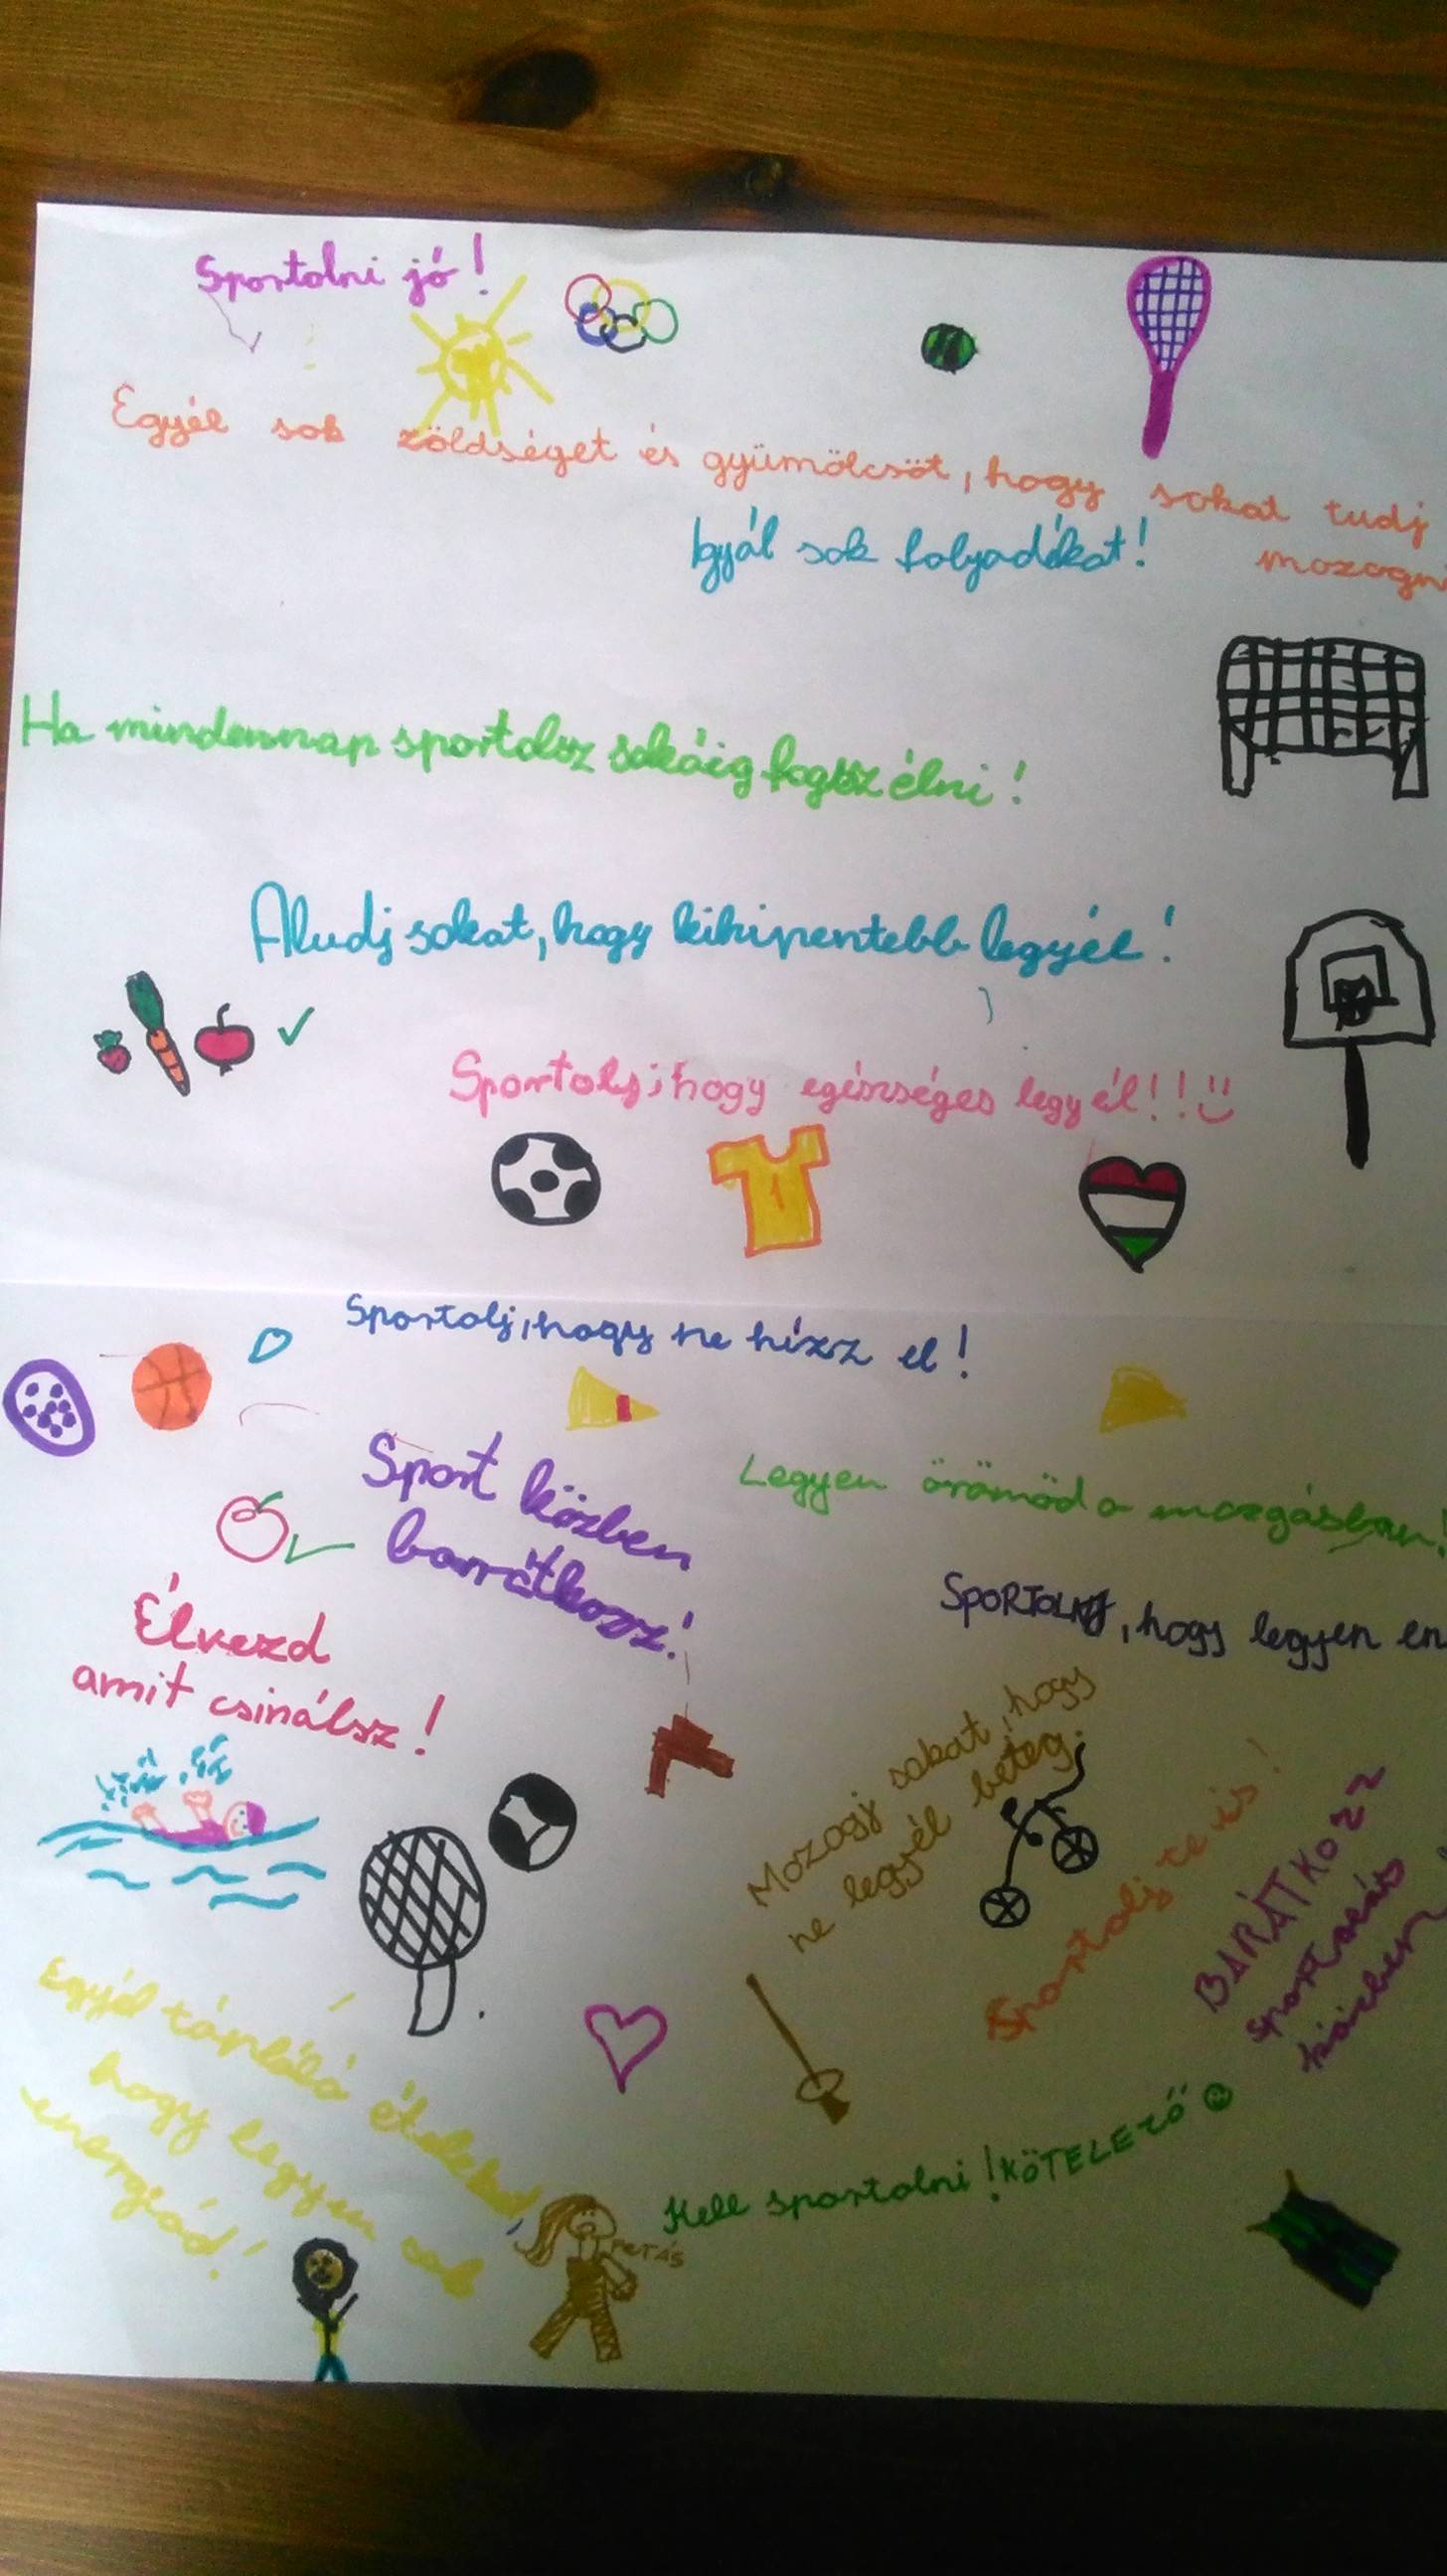 Sportolni jó!
Egyél sok zöldséget és gyümölcsöt, hogy sokat tudj
mozogni
Igyál sok folyadékot!
Ha mindennap sportolsz sokáig fogsz élni!
Aludj sokat, hogy kihipentebb legyél!
Sportolj, hogy egészséges legyél!!!
Sportolj, hogy ne hízz el!
Sport közben
barrátkozz!
Legyen örömöd a mozgásban!
Élvezd
amit csinálsz!
SPORTOLNJ, hogy legyen en
Mozogj sokat, hogy
ne legyél beteg.
Sportolj te is!
BARÁTKOZZ
sportolás
közben
Egyél tápláló ételeket,
hogy legyen sok
energiád!
Kell sportolni! KÖTELEZŐ
1